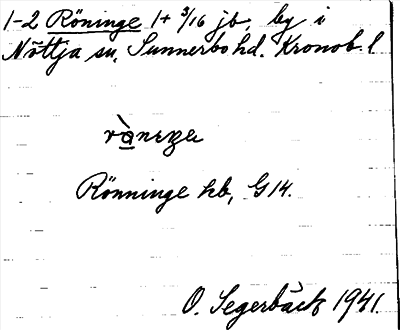 1-2 Röninge 1+ 3/16 jb, by i
Nöttja sn, Sunnerbo hd. Kronob. l
Rönninge kb, G14.
O. Segerbäck 1941.